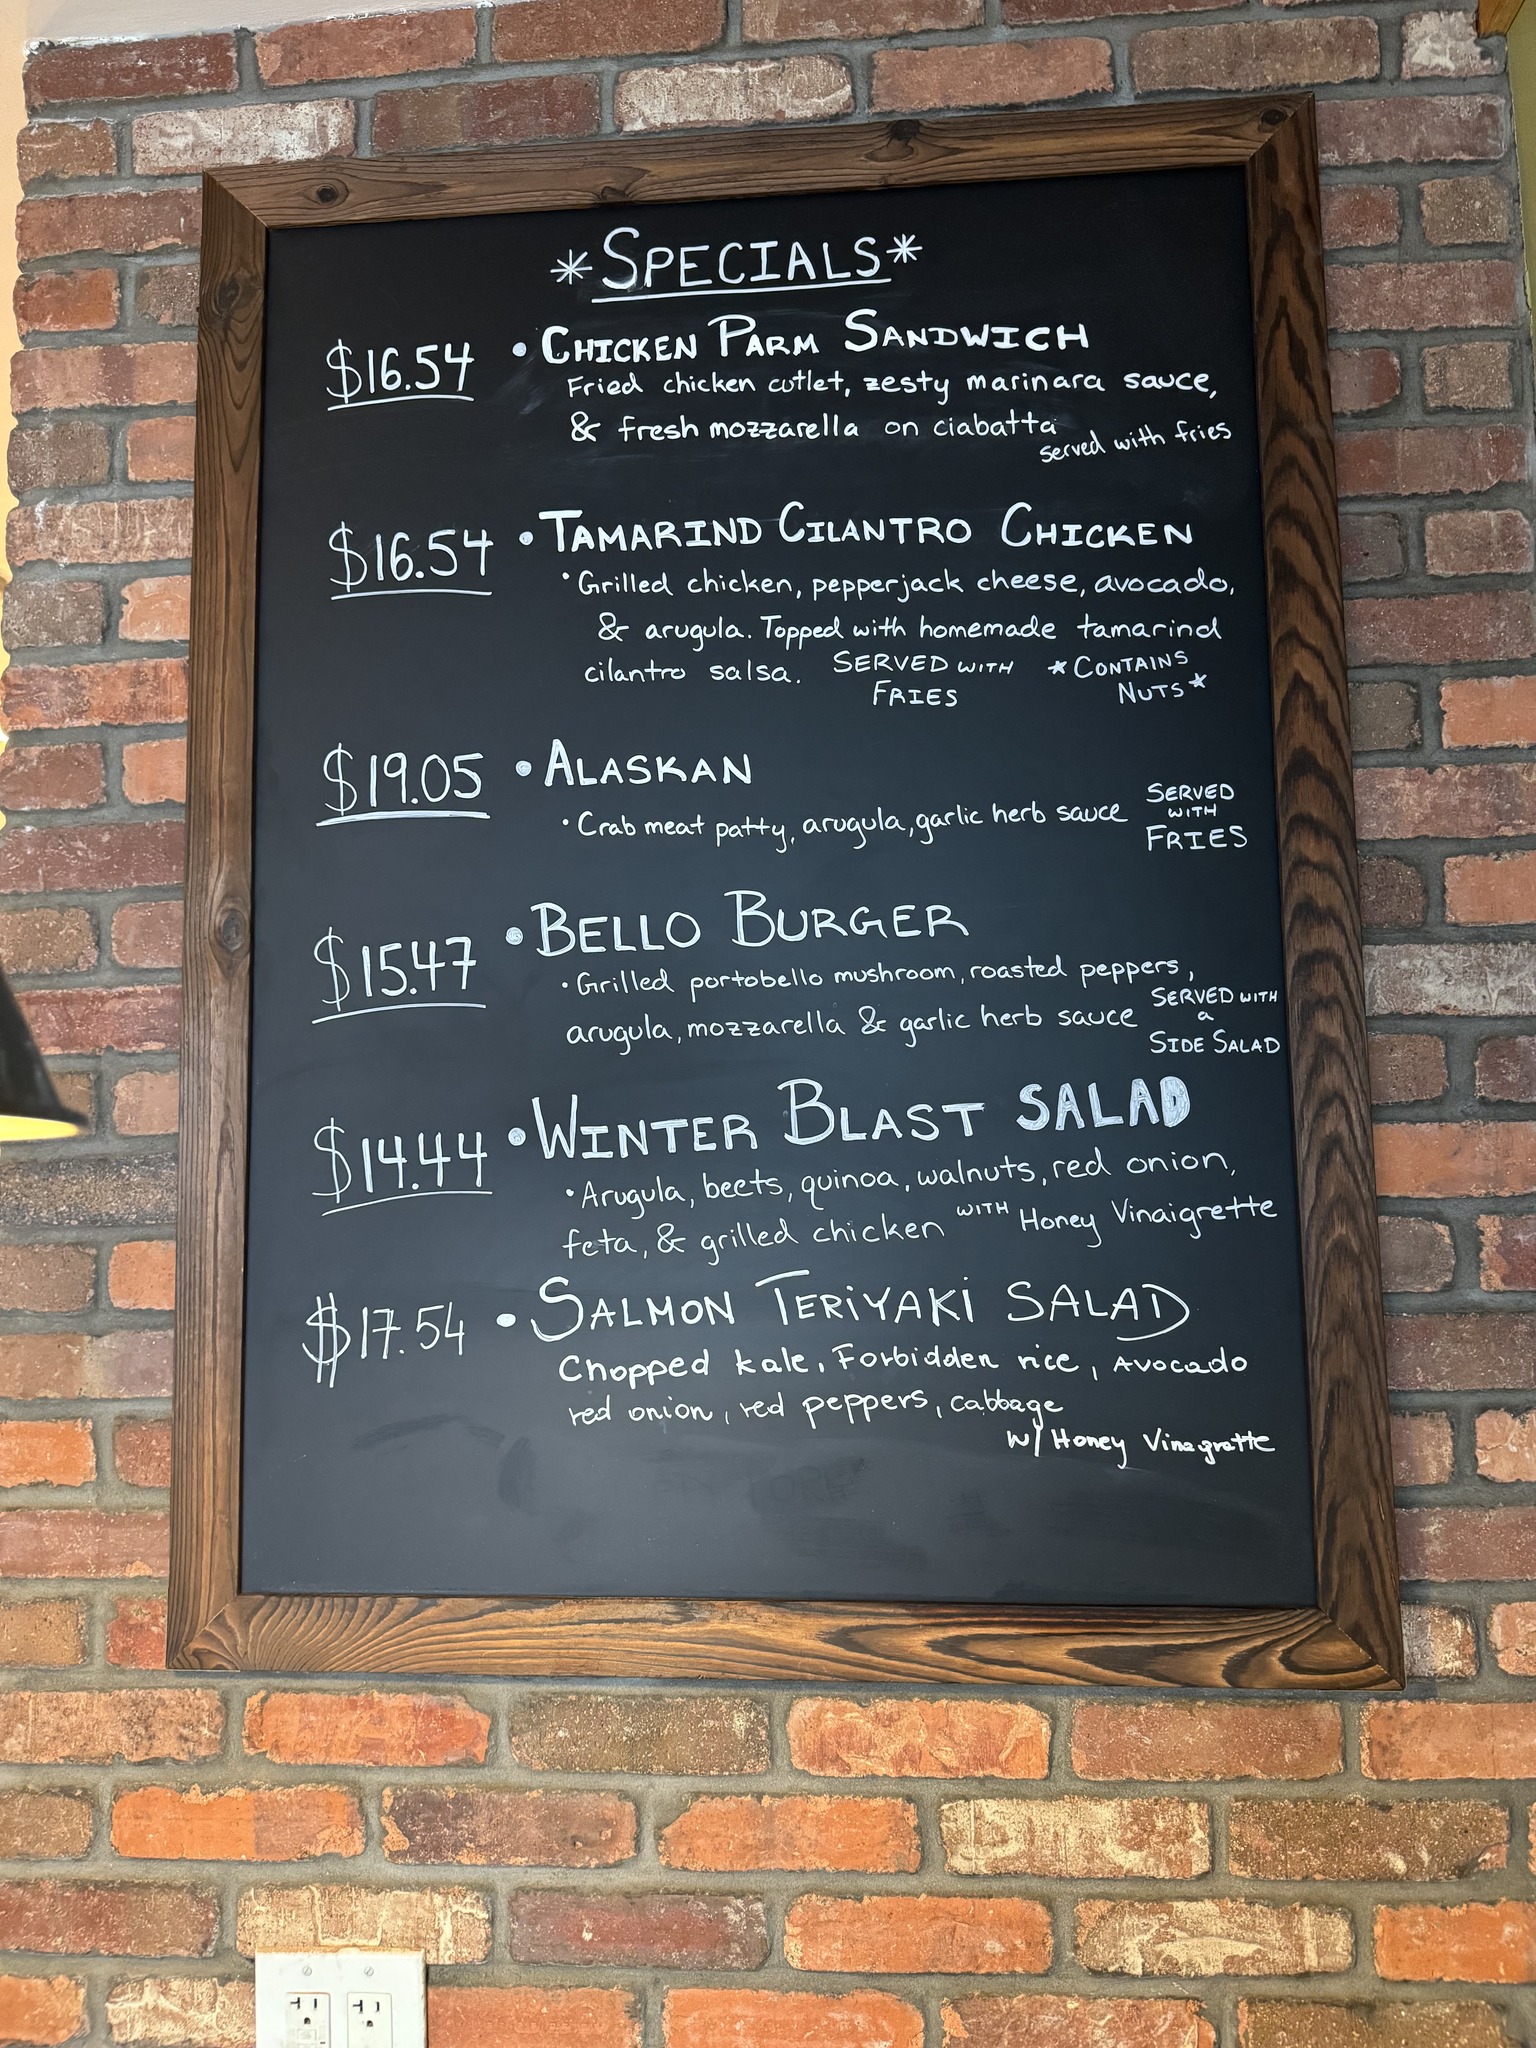 *SPECIALS*
$16.54 • CHICKEN PARM SANDWICH
Fried chicken cutlet, zesty marinara sauce,
& fresh mozzarella on ciabatta
served with fries
$16.54 • TAMARIND CILANTRO CHICKEN
• Grilled chicken, pepperjack cheese, avocado,
& arugula. Topped with homemade tamarind
cilantro salsa. SERVED WITH FRIES *CONTAINS NUTS*
$19.05 • ALASKAN
• Crab meat patty, arugula, garlic herb sauce SERVED WITH FRIES
$15.47 • BELLO BURGER
• Grilled portobello mushroom, roasted peppers,
arugula, mozzarella & garlic herb sauce SERVED WITH a SIDE SALAD
$14.44 • WINTER BLAST SALAD
• Arugula, beets, quinoa, walnuts, red onion,
feta, & grilled chicken WITH Honey Vinaigrette
$17.54 • SALMON TERiYAKi SALAD
Chopped kale, Forbidden rice, Avocado
red onion, red peppers, cabbage
w/ Honey Vinagrette